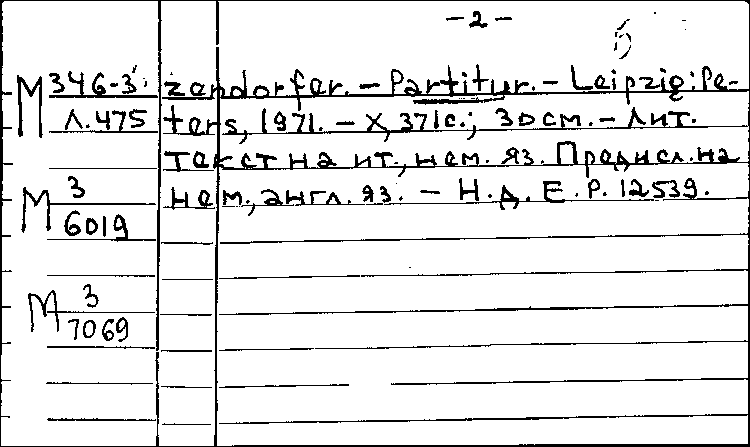 - 2 -
5
М 346-3 zendorfer. - Partitur. - Leipzig: Pe-
Л.475 ters, 1971. - X, 371 с.; 30 см. - Лит.
текст на ит., нем. яз. Предисл. на
М 3 нем., англ. яз. - Н.д. E.P. 12539.
6019
М 3
7069